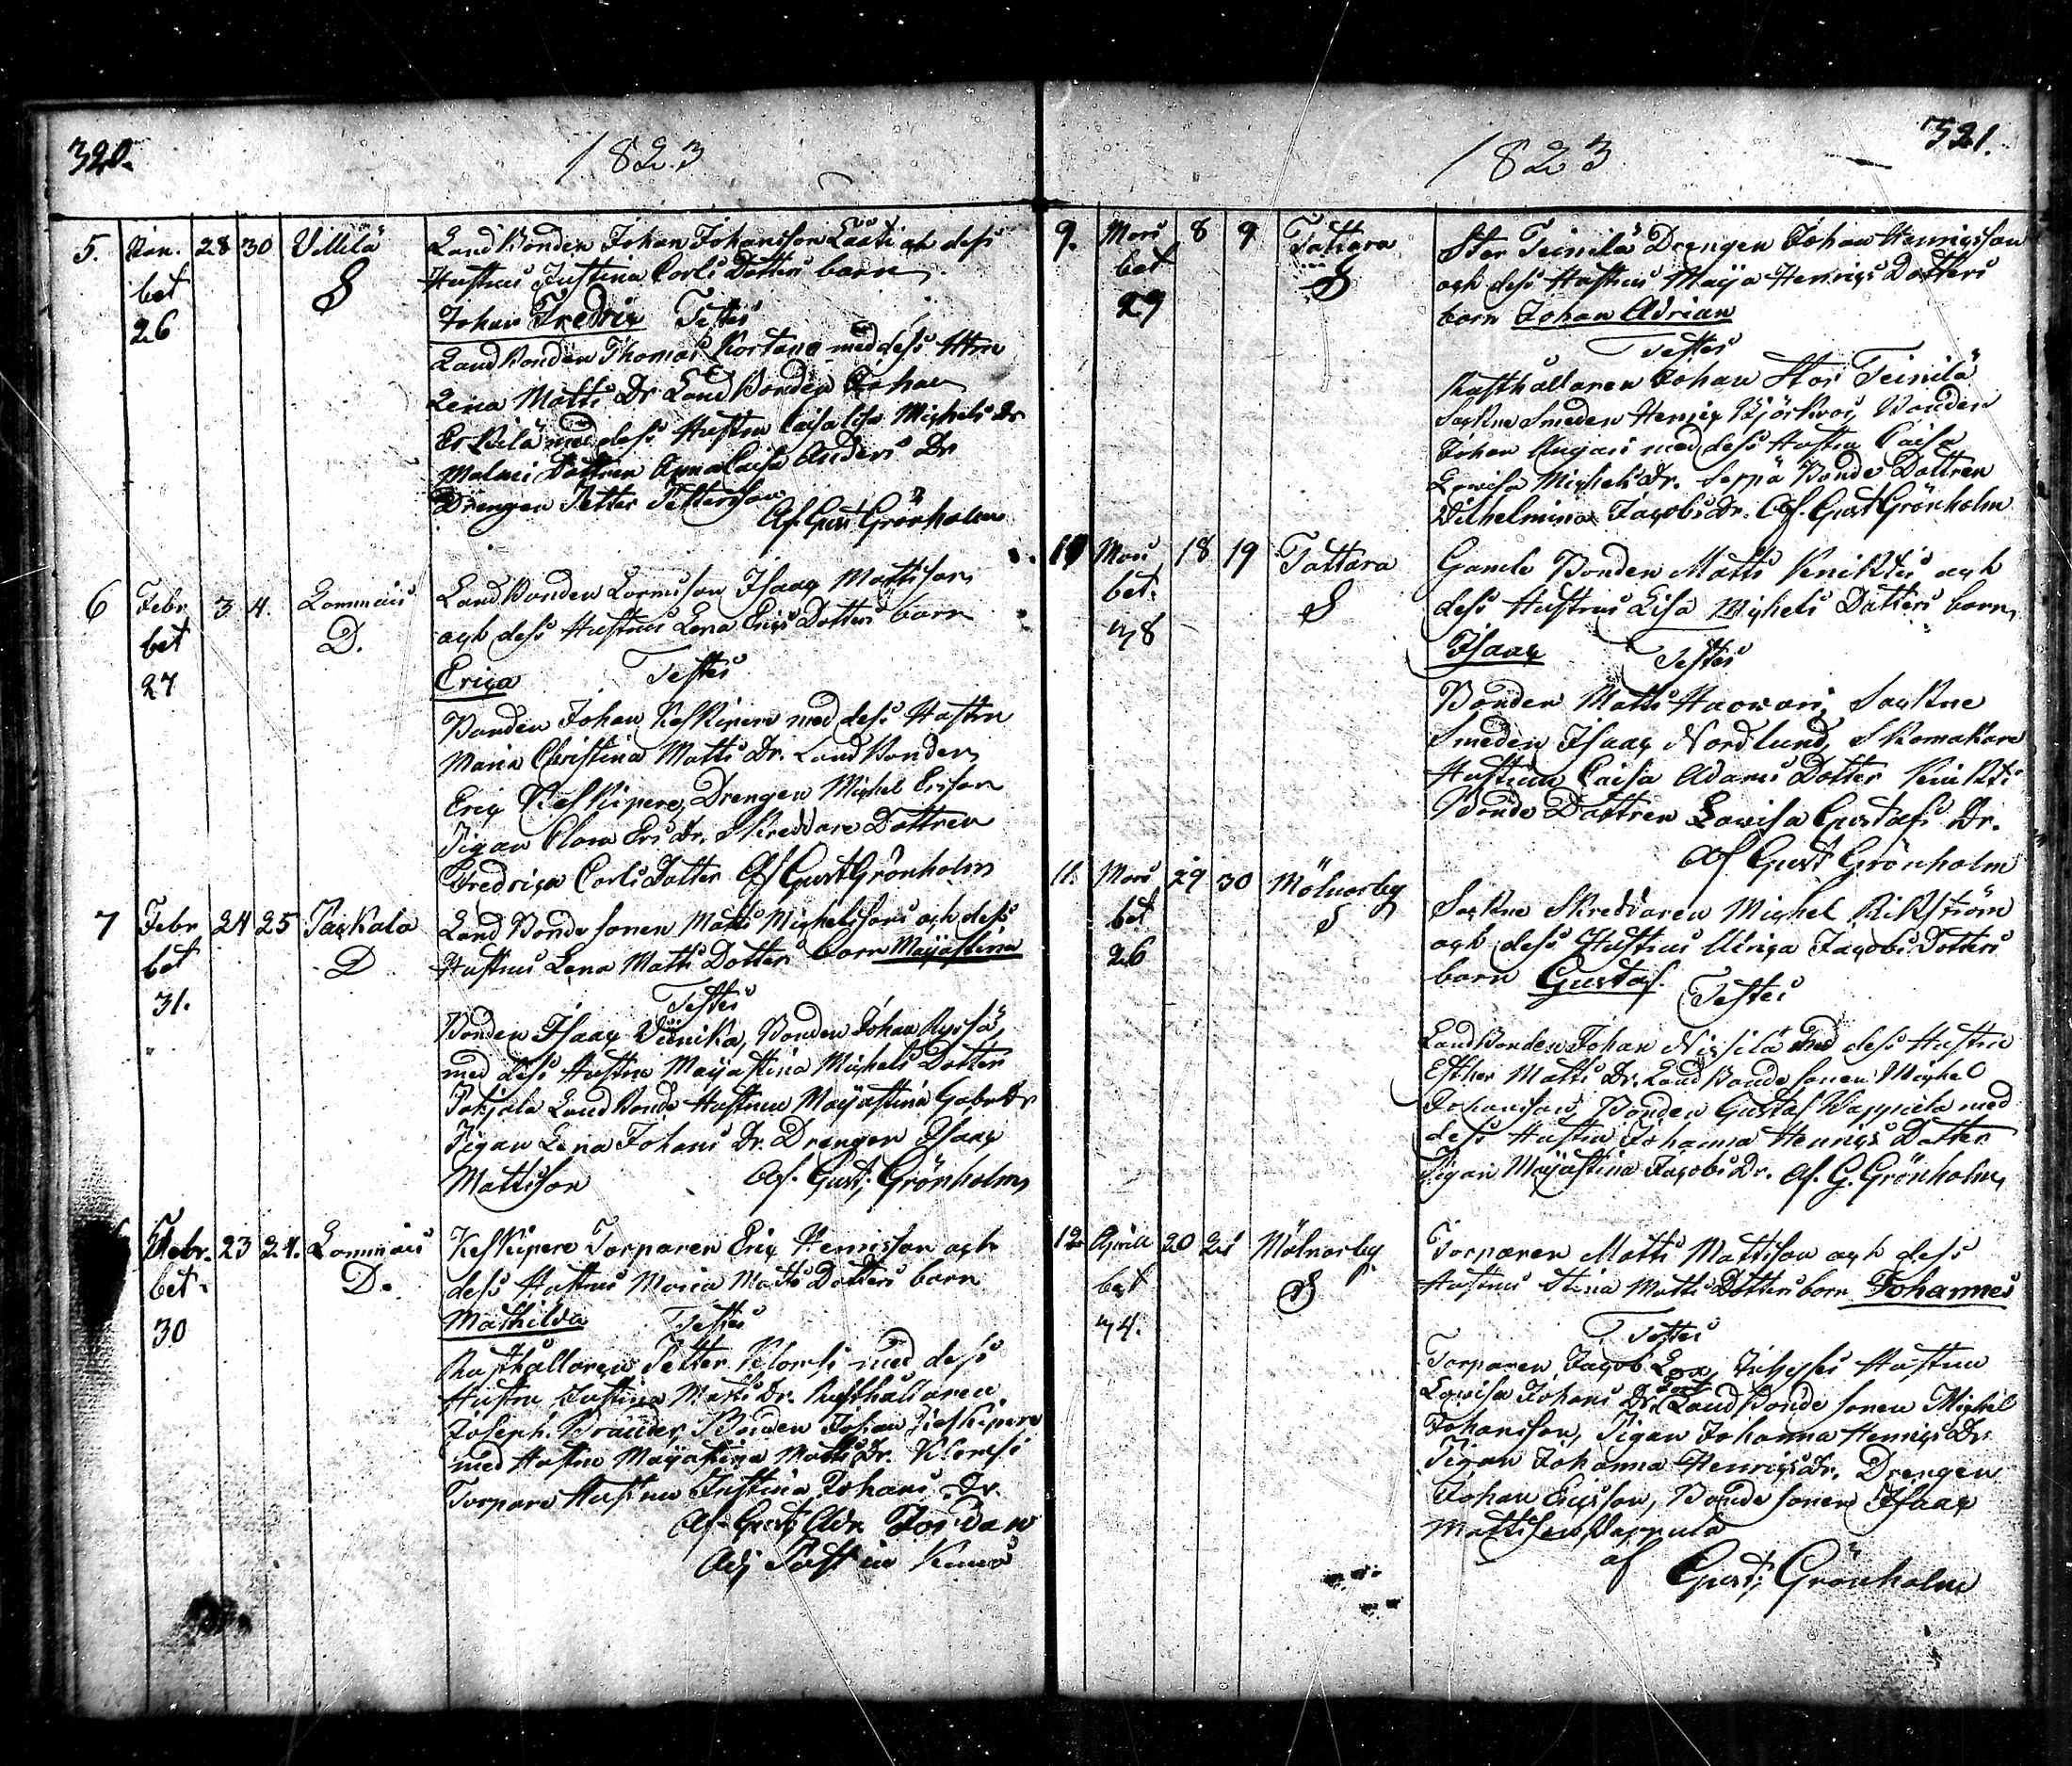 320.
1823
5. Jan. 28 30 Villilä LandBonden Johan Johansson Laati och dess
bet S Hustrus Justina Carls Dotters barn
26 Johan Fredric Testes
LandBonden Thomas Kortana med dess Hru
Lena Matts Dr LandBonden Johan
Erkkilä med dess Hustru Caisa Lisa Michels Dr
Dottren Anna Caisa Anders Dr
Drengen Petter Pettersson
Af Gust Grönholm
6 Febr 3 4. Lammais LandBonden Isaac Mattsson
bet D. och dess Hustrus Lena Erics Dotters barn
27 Erica Testes
Bonden Johan Keskipere med dess Hustru
Maria Christina Matts Dr. LandBonden
Eric Keskipere, Drengen Michel Ericson
Pigan Clara Ers Dr. Skreddare Dottren
Fredrica Carls Dotter Af Gust Grönholm
7 Febr 24 25 Paskala Land Bonde sonen Matts Michelssons och dess
bet D Hustrus Lena Matts Dotters barn Majastina
31. Testes
Bonden Isaac Viinika, Bonden Johan Ryssä
med dess Hustru Majastina Michels Dotter
Pohjala LandBonde Hustrun Majastina Gabr Dr
Pigan Lena Johans Dr. Drengen Isaac
Mattsson Af. Gust. Grönholm
Febr. 23 24. Lammais Keskipere Torparen Eric Henrisson och
bet. D. dess Hustrus Maria Matts Dotters barn
30 Mathilda Testes
Rusthållaren Petter Klomsi med dess
Hustru Justina Matts Dr. Rusthållaren
Joseph Brander, Bonden Johan Keskipere
med Hustru Majastina Matts Dr. Klomsi
Torpare Hustrun Justina Johans Dr.
Af Gust Adr. Jordan
Adj Past in Kumo
321.
1823
9. Mars 8 9 Tattara Stor Teinilä Drengen Johan Henricsson
bet S och dess Hustrus Maja Henrics Dotters
29 barn Johan Adrian
Testes
Rusthållaren Johan Stor Teinilä
Sockne Smeden Henric Björkroos, Bonden
Johan Ungari med dess Hustru Caisa
Lowisa Michels Dr. Seppä Bonde Dottren
Wilhelmina Jacobs Dr. Af. Gust Grönholm
10 Mars 18 19 Tattara Gamle Bonden Matts Knicktis och
bet. S dess Hustrus Lisa Michels Dotters barn
48 Isaac Testes
Bonden Matts Haowari, Sockne
Smeden Isaac Nordlund, Skomakare
Hustrun Caisa Adams Dotter
Bonde Dottren Lowisa Gustafs Dr.
Af Gust Grönholm
11. Mars 29 30 Mölnorby Sockne Skreddaren Michel Rikström
bet S och dess Hustrus Ulrica Jacobs Dotters
26 barn Gustaf. Testes
LandBonden Johan Nisilä med dess Hustru
Esther Matts Dr. Land Bonde sonen Michel
Johansson, Bonden Gustaf Wappula med
dess Hustru Johanna Henrics Dotter
Pigan Majastina Jacobs Dr. Af. G. Grönholm,
12 April 20 21 Mölnorby Torparen Matts Mattsson och dess
bet S Hustrus Stina Matts Dotters barn Johannes
44. Testes
Torparen Jacob Hustrun
Lowisa Johans Dr. Land Bonde sonen Michel
Johansson, Pigan Johanna Henrics Dr.
Pigan Johanna Henrics Dr. Drengen
Johan Ericsson, Bonde sonen Isaac
Mattsson Wappula
af Gust. Grönholm